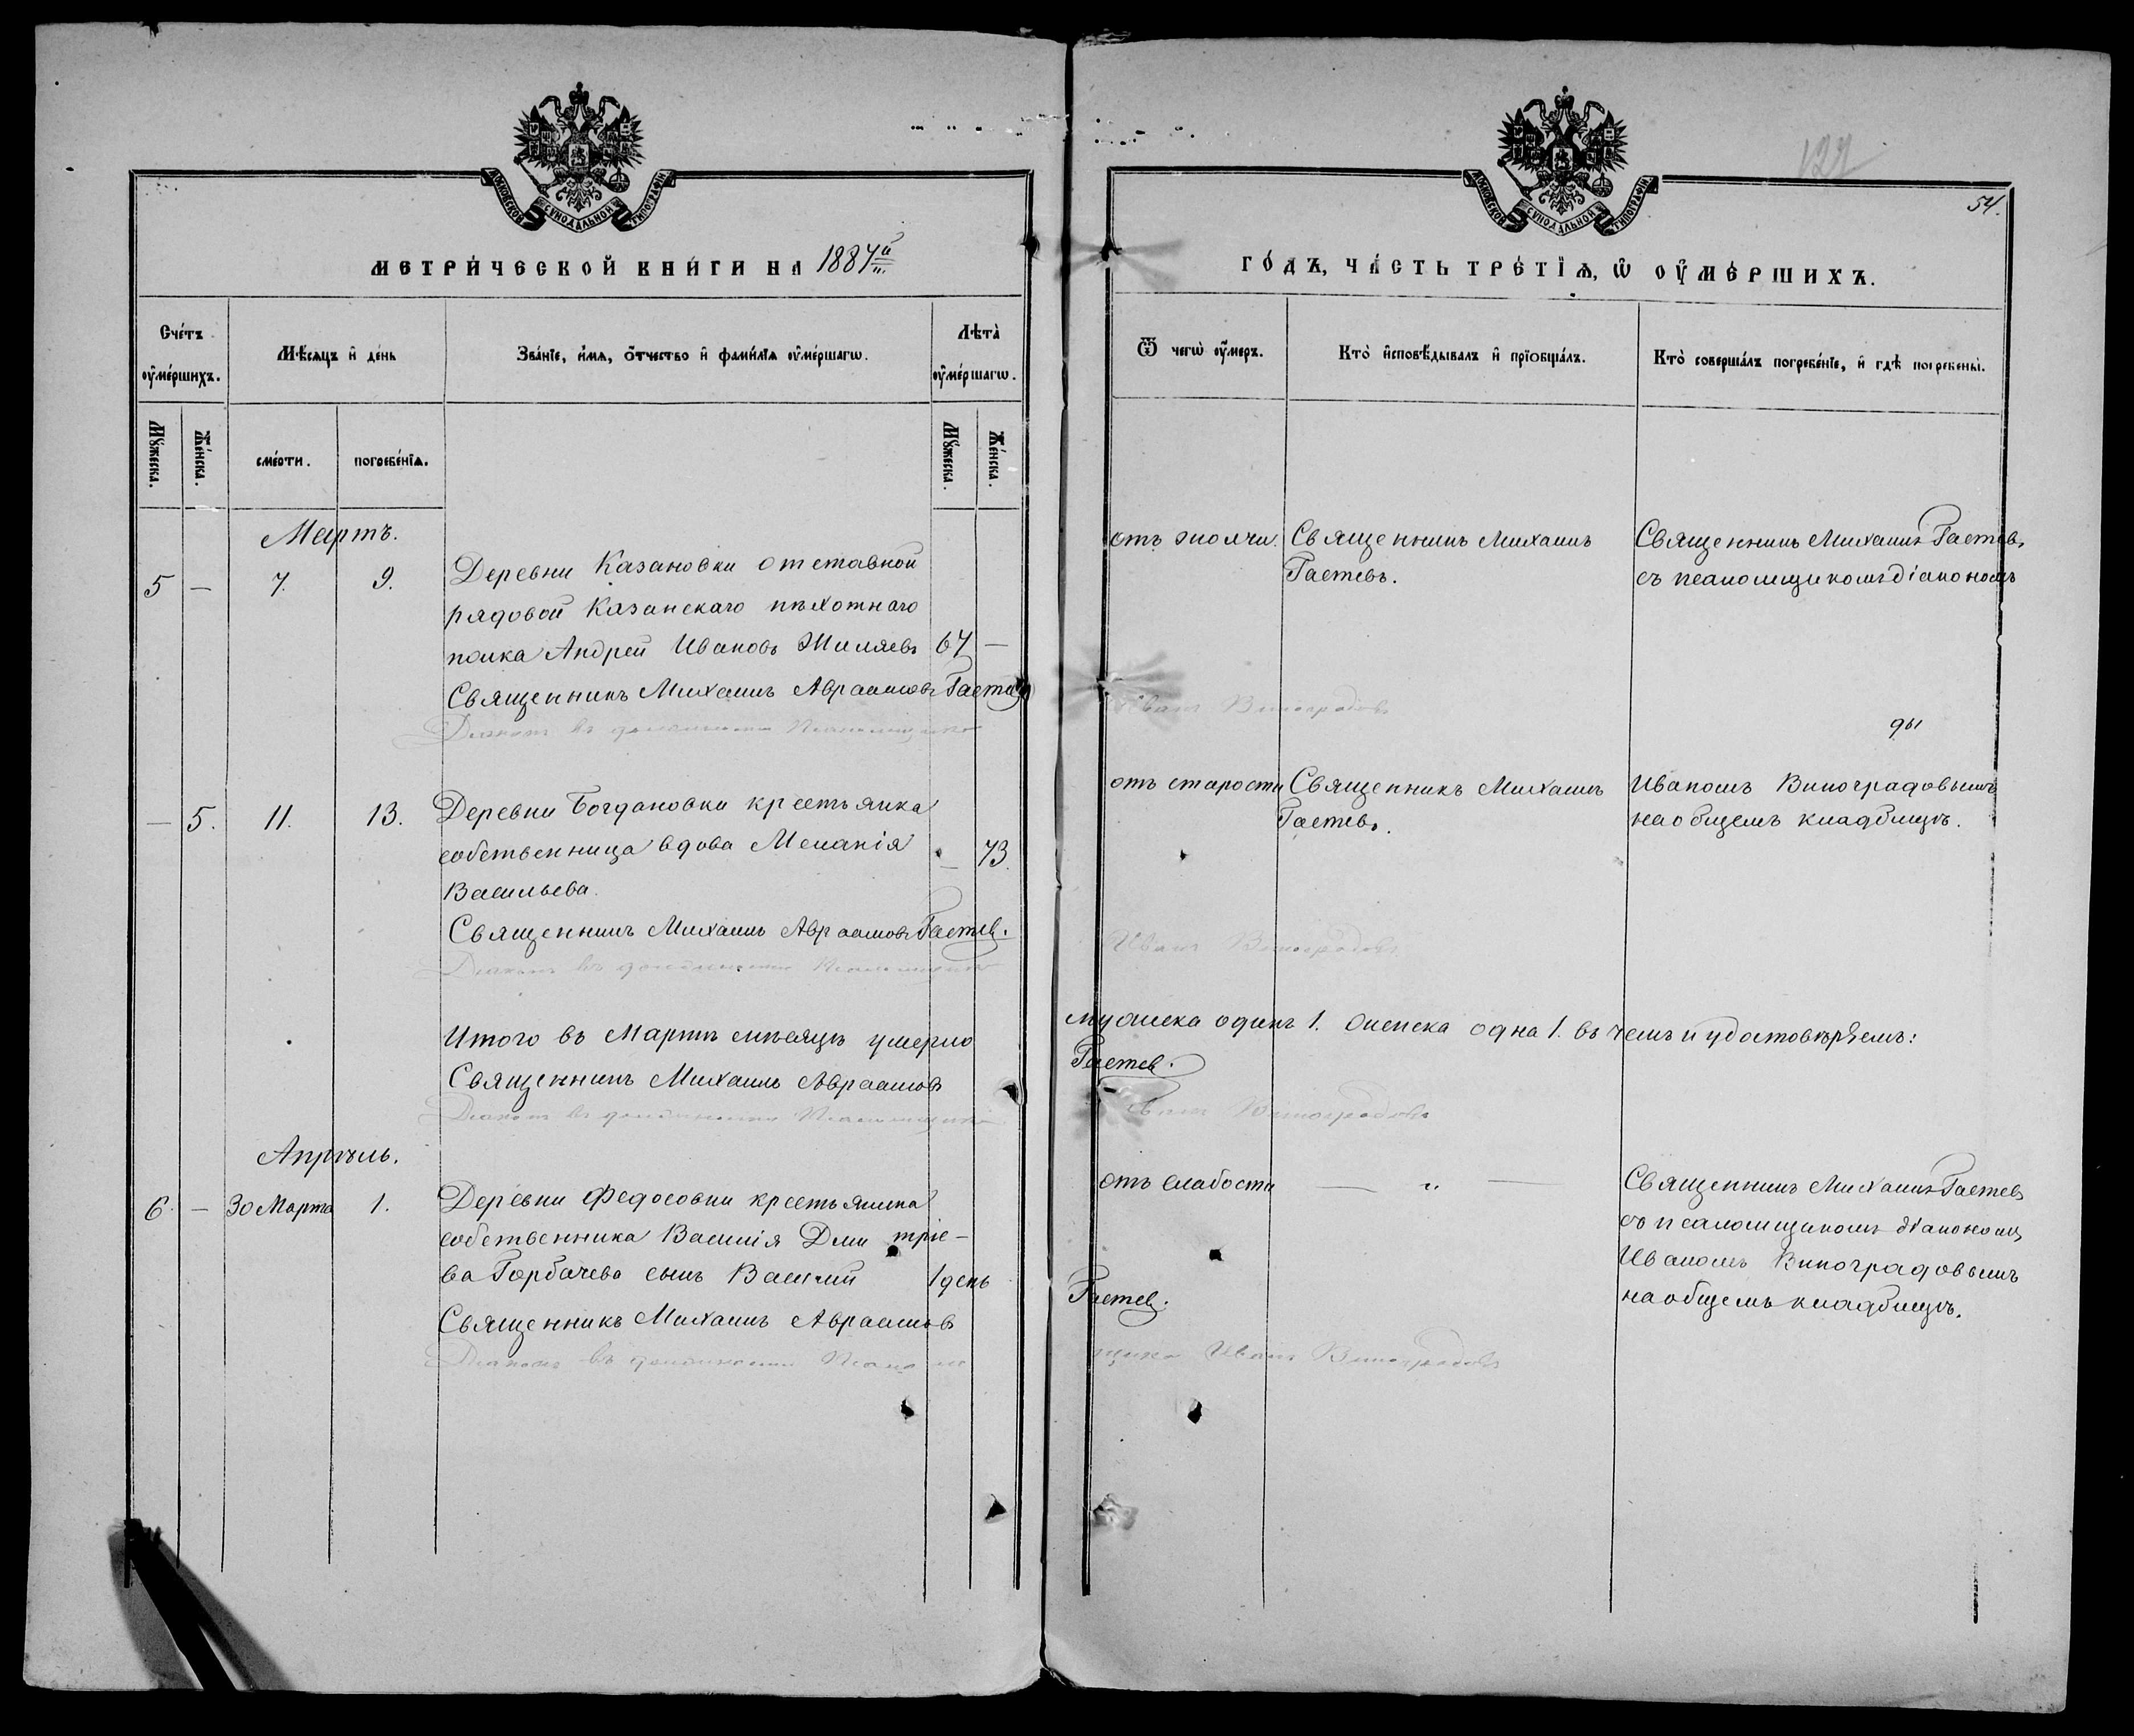 МОСКОВСКОЙ СѴНОДАЛЬНОЙ ТИПОГРАФІИ
МЕТРИ́ЧЕСКОЙ КНИ́ГИ НА 1887й
Сче́тъ оу҆ме́ршихъ.
Мѣ́сяцъ и҆ де́нь
Зва́нїе, и҆́мѧ, ѻ҆́тчество и҆ фами́лїѧ оу҆ме́ршагѡ.
Лѣта̀ оу҆ме́ршагѡ.
Мꙋ́жеска.
Же́нска.
сме́рти.
погребе́нїѧ.
Мꙋ́жеска.
Же́нска.
Мартъ.
5 — 7. 9. Деревни Казановки отставной
рядовой Казанскаго пѣхотнаго
полка Андрей Ивановъ Жиляевъ 67 —
Священникъ Михаилъ Авраамовъ Гастев
Діаконъ въ должности Псаломщика
— 5. 11. 13. Деревни Богдановки крестьянка
собственница вдова Меланія — 73.
Васильева.
Священникъ Михаилъ Авраамовъ Гастев.
Діаконъ въ должности Псаломщика
Итого въ Мартѣ мѣсяцѣ умерло
Священникъ Михаилъ Авраамовъ
Діаконъ въ должности Псаломщика
Апрѣль.
6. — 30 Марта 1. Деревни Федосовки крестьянина
собственника Василія Дмитріе-
ва Горбачева сынъ Василій 1 день
Священникъ Михаилъ Авраамовъ
Діаконъ въ должности Псалом
127
54.
МОСКОВСКОЙ СѴНОДАЛЬНОЙ ТИПОГРАФІИ
ГО́ДЪ, ЧА́СТЬ ТРЕ́ТЇѦ, Ѡ҆ ОУ҆МЕ́РШИХЪ.
Ѿ чегѡ̀ оу҆́меръ.
Кто̀ и҆сповѣ́дывалъ и҆ прїѡбща́лъ.
Кто̀ соверша́лъ погребе́нїе, и҆ гдѣ̀ погребены̀.
отъ желчи. Священникъ Михаилъ Священникъ Михаилъ Гастевъ
Гастевъ. съ псаломщикомъ діакономъ
Иванъ Виноградовъ
отъ старости Священникъ Михаилъ Иваномъ Виноградовымъ
Гастевъ. на общемъ кладбищѣ.
Иванъ Виноградовъ
мужеска одинъ 1. женска одна 1. въ чемъ и удостовѣряемъ:
Гастев.
Иванъ Виноградовъ
отъ слабости — „ — Священникъ Михаилъ Гастевъ
съ псаломщикомъ діакономъ
Иваномъ Виноградовымъ
Гастев. на общемъ кладбищѣ.
щика Иванъ Виноградовъ